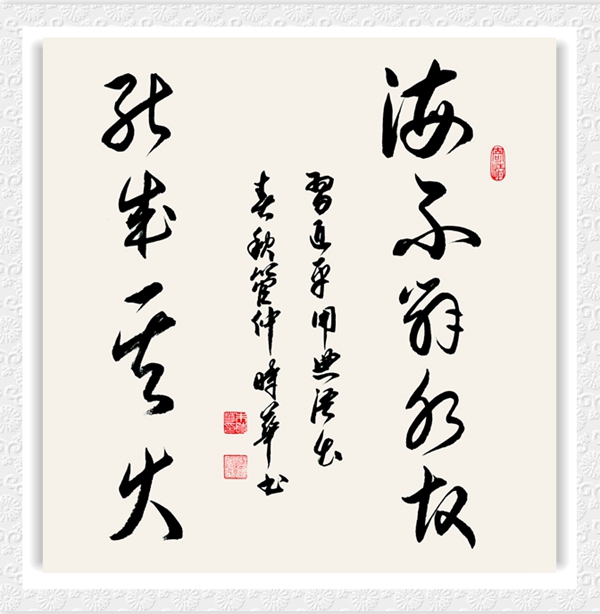 海不辭水故
能成其大
習近平用典语出
春秋管仲時華书